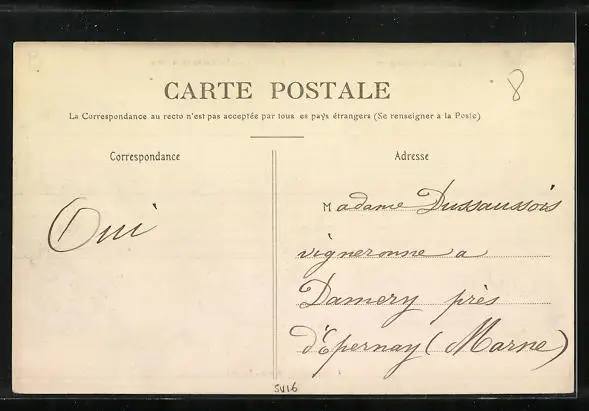 8
CARTE POSTALE
La Correspondance au recto n'est pas acceptée par tous es pays étrangers (Se renseigner a la Poste)
Correspondance
Oui
Adresse
Madame Dussaussois
vigneronne a
Damery près
d'Epernay (Marne)
SV16